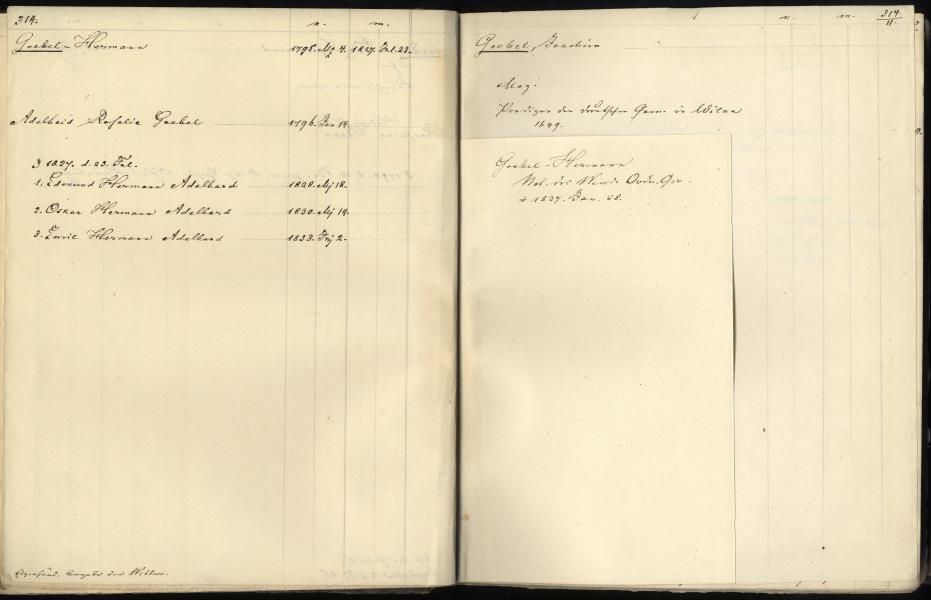 314.
n. m.
Goebel-Hermann 1798. 4. 1827. Jul. 23.
Adelheid Rosalie Goebel 1796. Jan 14.
3 1827. d. 23. Jul.
1. Edmund Hermann Adelhard 1828. Mj 18.
2. Oskar Hermann Adelhard 1830. Mj 14.
3. Emil Hermann Adelhard 1833. 2.
Angabe der Wittwe.
n. m. 314/II.
Goebel, Joachim
Mag.
Prediger der deutschen Gem. in Wilna
1649.
Goebel-Hermann
Not. des Wend. Ordn. Ger.
+ 1837. Jan. 28.